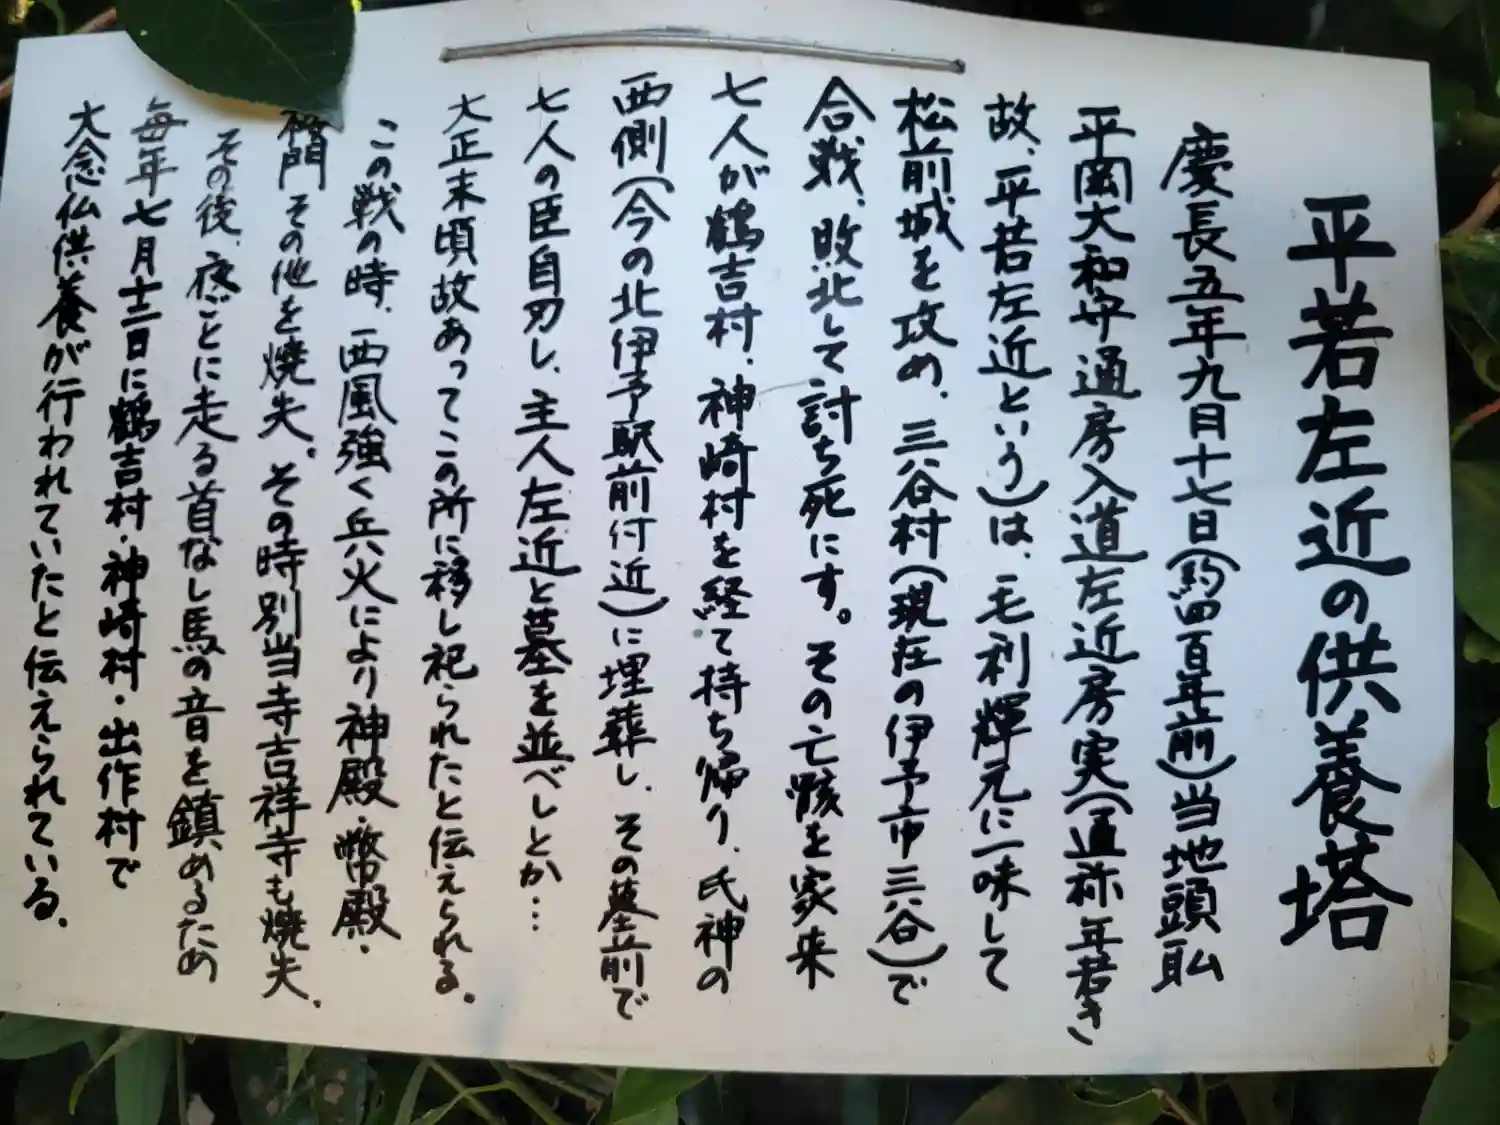 平若左近の供養塔
慶長五年九月十七日（約四百年前）当地頭職
平岡大和守通房入道左近房実（通称年若き
故、平若左近という）は、毛利輝元に一味して
松前城を攻め、三谷村（現在の伊予市三谷）で
合戦、敗北して討ち死にす。その亡骸を家来
七人が鶴吉村、神崎村を経て持ち帰り、氏神の
西側（今の北伊予駅前付近）に埋葬し、その墓前で
七人の臣自刃し、主人左近と墓を並べしとか…
大正末頃故あってこの所に移し祀られたと伝えられる。
この戦の時、西風強く兵火により神殿・幣殿・
楼門その他を焼失。その時別当寺吉祥寺も焼失。
その後、夜ごとに走る首なし馬の音を鎮めるため
毎年七月十三日に鶴吉村・神崎村・出作村で
大念仏供養が行われていたと伝えられている。